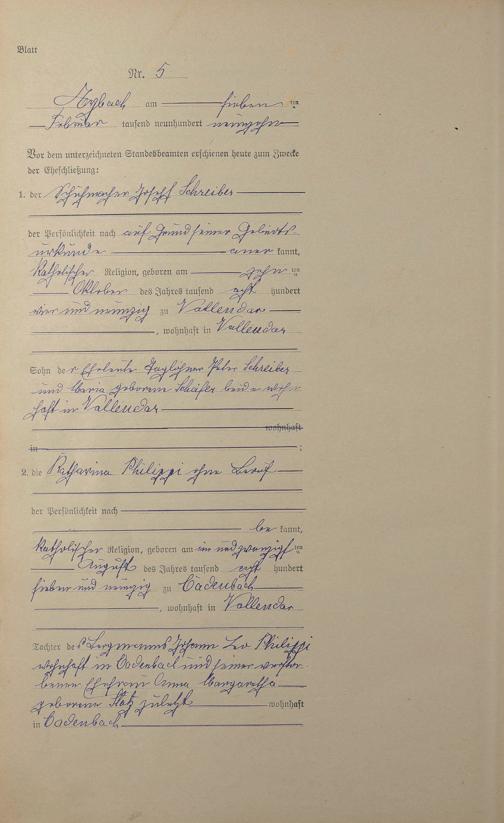 Blatt
Nr. 5
Arzbach am sieben ten
Februar tausend neunhundert neunzehn
Vor dem unterzeichneten Standesbeamten erschienen heute zum Zwecke
der Eheschließung:
1. der Schuhmacher Joseph Schreiber
der Persönlichkeit nach auf Grund seiner Geburts
urkunde aner kannt,
katholischer Religion, geboren am zehn ten
Oktober des Jahres tausend acht hundert
vier und neunzig zu Vallendar
, wohnhaft in Vallendar
Sohn der Eheleute Taglöhner Peter Schreiber
und Maria geborene Schäfer beide wohn
haft in Vallendar
wohnhaft
in ;
2. die Katharina Philippi ohne Beruf
der Persönlichkeit nach
be kannt,
katholischer Religion, geboren am ein und zwanzigs ten
August des Jahres tausend acht hundert
sieben und neunzig zu Cadenbach
, wohnhaft in Vallendar
Tochter des Bergmanns Johann Leo Philippi
wohnhaft in Cadenbach und seiner verstor
benen Ehefrau Anna Margaretha
geborene zuletzt wohnhaft
in Cadenbach